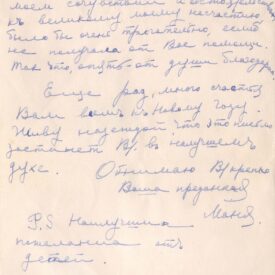 моем сочувствии и
къ великому моему несчастию,
было бы очень трогательно, если
не получала от Вас помощи.
Так что, опять от души благодарю.
Еще раз, много счастья
Вам всем къ Новому Году.
Живу надеждой, что это письмо
застанет В/. в наилучшем
духе. Обнимаю В/ крепко
Ваша преданная
Маня.
P.S Наилучшие
пожелания отъ
детей.